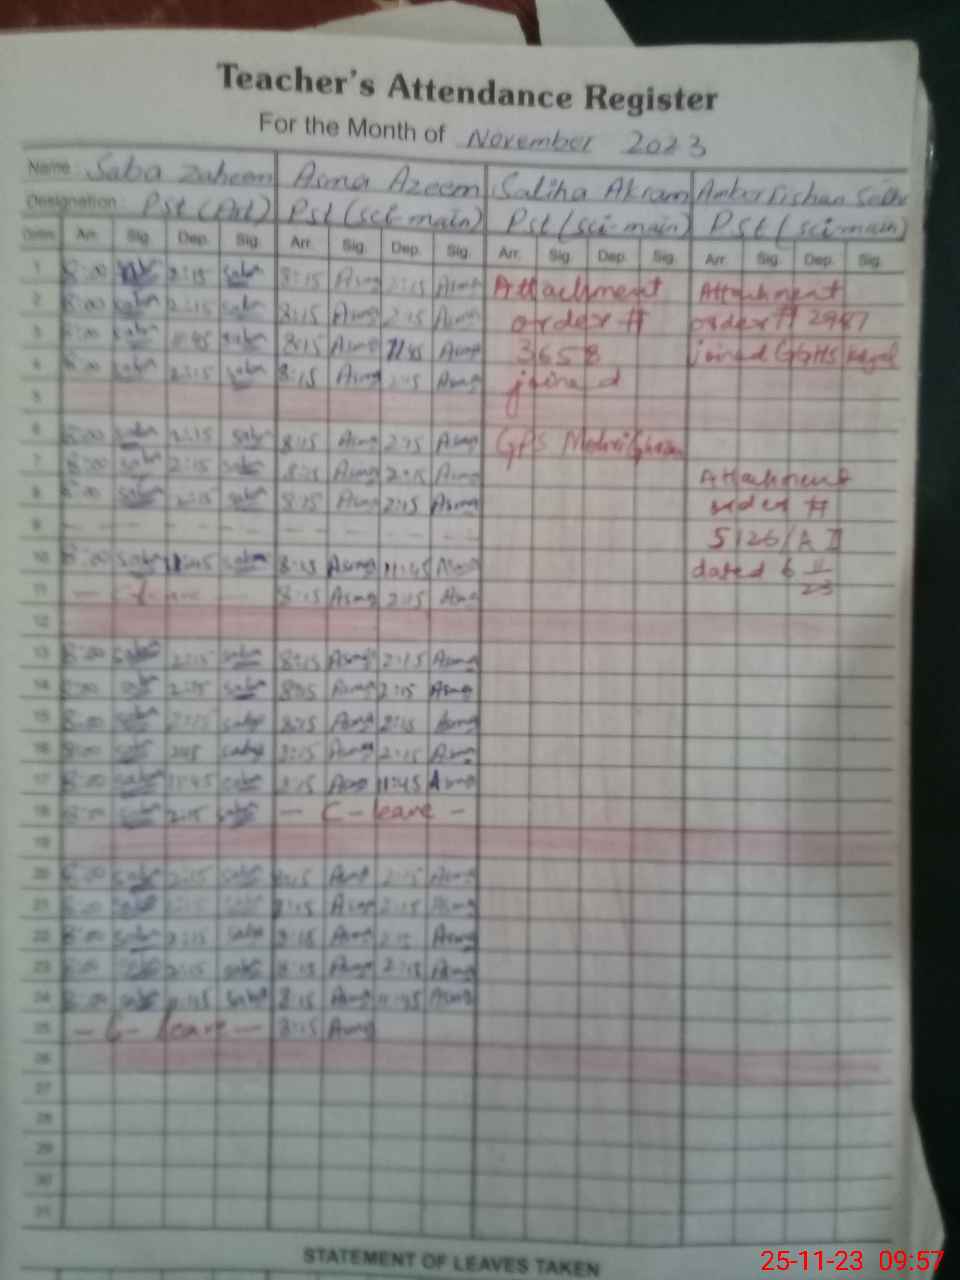 Teacher's Attendance Register
For the Month of November 2023
Name Saba Zaheem Asma Azeem Saliha Akram Amber
Designation Pst (Art) Pst (sci-main) Pst (sci-main) Pst (sci-main)
Dates Arr. Sig. Dep. Sig. Arr. Sig. Dep. Sig. Arr. Sig. Dep. Sig. Arr. Sig. Dep. Sig.
1 8:00 2:15 saba 8:15 Asma 2:15 Asma Attachment Attachment
2 8:00 saba 2:15 saba 8:15 Asma 2:15 Asma order # order # 2987
3 8:00 saba 11:45 saba 8:15 Asma 11:45 Asma 3658 joined
4 saba 2:15 saba 8:15 Asma 2:15 Asma joined
5
6 8:00 saba 2:15 saba 8:15 Asma 2:15 Asma GPS
7 8:00 saba 2:15 saba 8:15 Asma 2:15 Asma Attachment
8 8:00 saba 2:15 saba 8:15 Asma 2:15 Asma order #
9 - - - - - - - - 5126/A II
10 8:00 saba 11:45 saba 8:15 Asma 11:45 Asma dated 6 11/23
11 - leave - 8:15 Asma 2:15 Asma
12
13 8:00 saba 2:15 saba 8:15 Asma 2:15 Asma
14 8:00 saba 2:15 saba 8:15 Asma 2:15 Asma
15 8:00 saba 2:15 saba 8:15 Asma 2:15 Asma
16 8:00 saba 2:15 saba 8:15 Asma 2:15 Asma
17 8:00 saba 11:45 saba 8:15 Asma 11:45 Asma
18 8:00 saba 2:15 saba - C-leave -
19
20 8:00 saba 2:15 saba 8:15 Asma 2:15 Asma
21 8:00 saba 2:15 saba 8:15 Asma 2:15 Asma
22 8:00 saba 2:15 saba 8:15 Asma 2:15 Asma
23 8:00 saba 2:15 saba 8:15 Asma 2:15 Asma
24 8:00 saba 11:45 saba 8:15 Asma 11:45 Asma
25 - C-leave - 8:15 Asma
26
27
28
29
30
31
STATEMENT OF LEAVES TAKEN
25-11-23 09:57